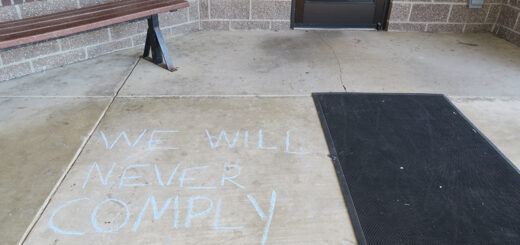 WE WILL
NEVER
COMPLY